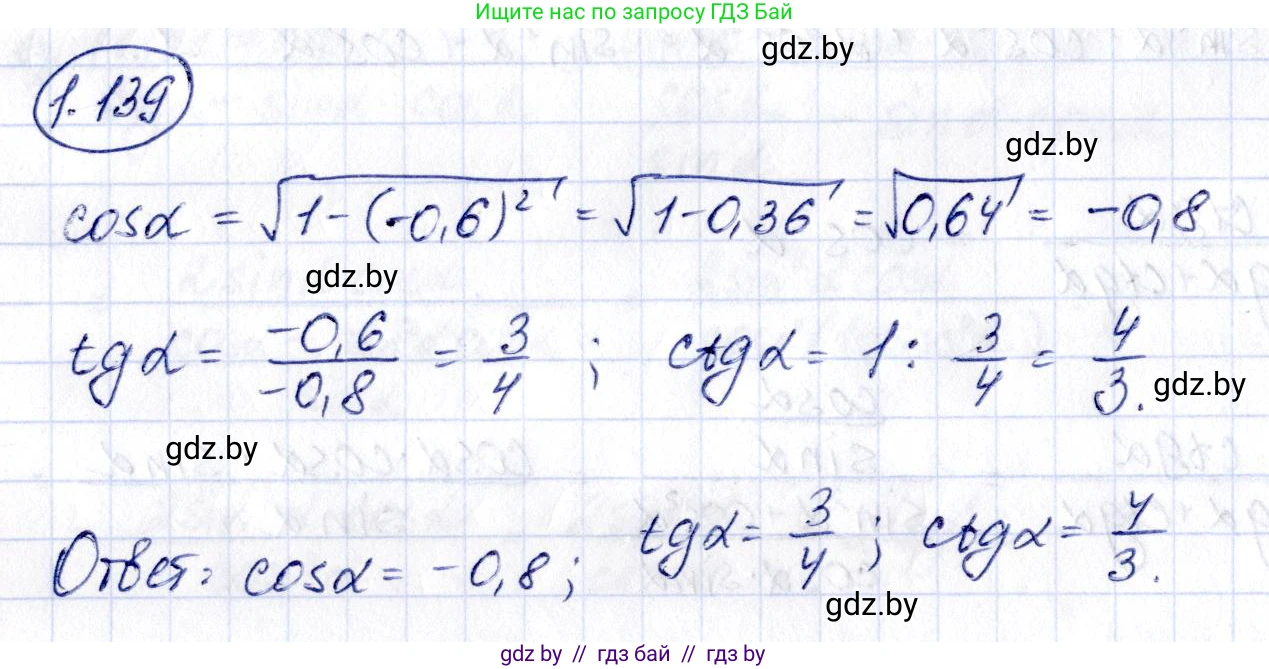 Ищите нас по запросу ГДЗ Бай
gdz.by
1.139
gdz.by
cosα = √(1-(-0,6)²) = √(1-0,36) = √(0,64) = -0,8
gdz.by
tgα = -0,6/-0,8 = 3/4 ; ctgα = 1 : 3/4 = 4/3.
gdz.by
gdz.by
Ответ: cosα = -0,8; tgα = 3/4; ctgα = 4/3.
gdz.by
gdz.by // гдз бай // гдз by